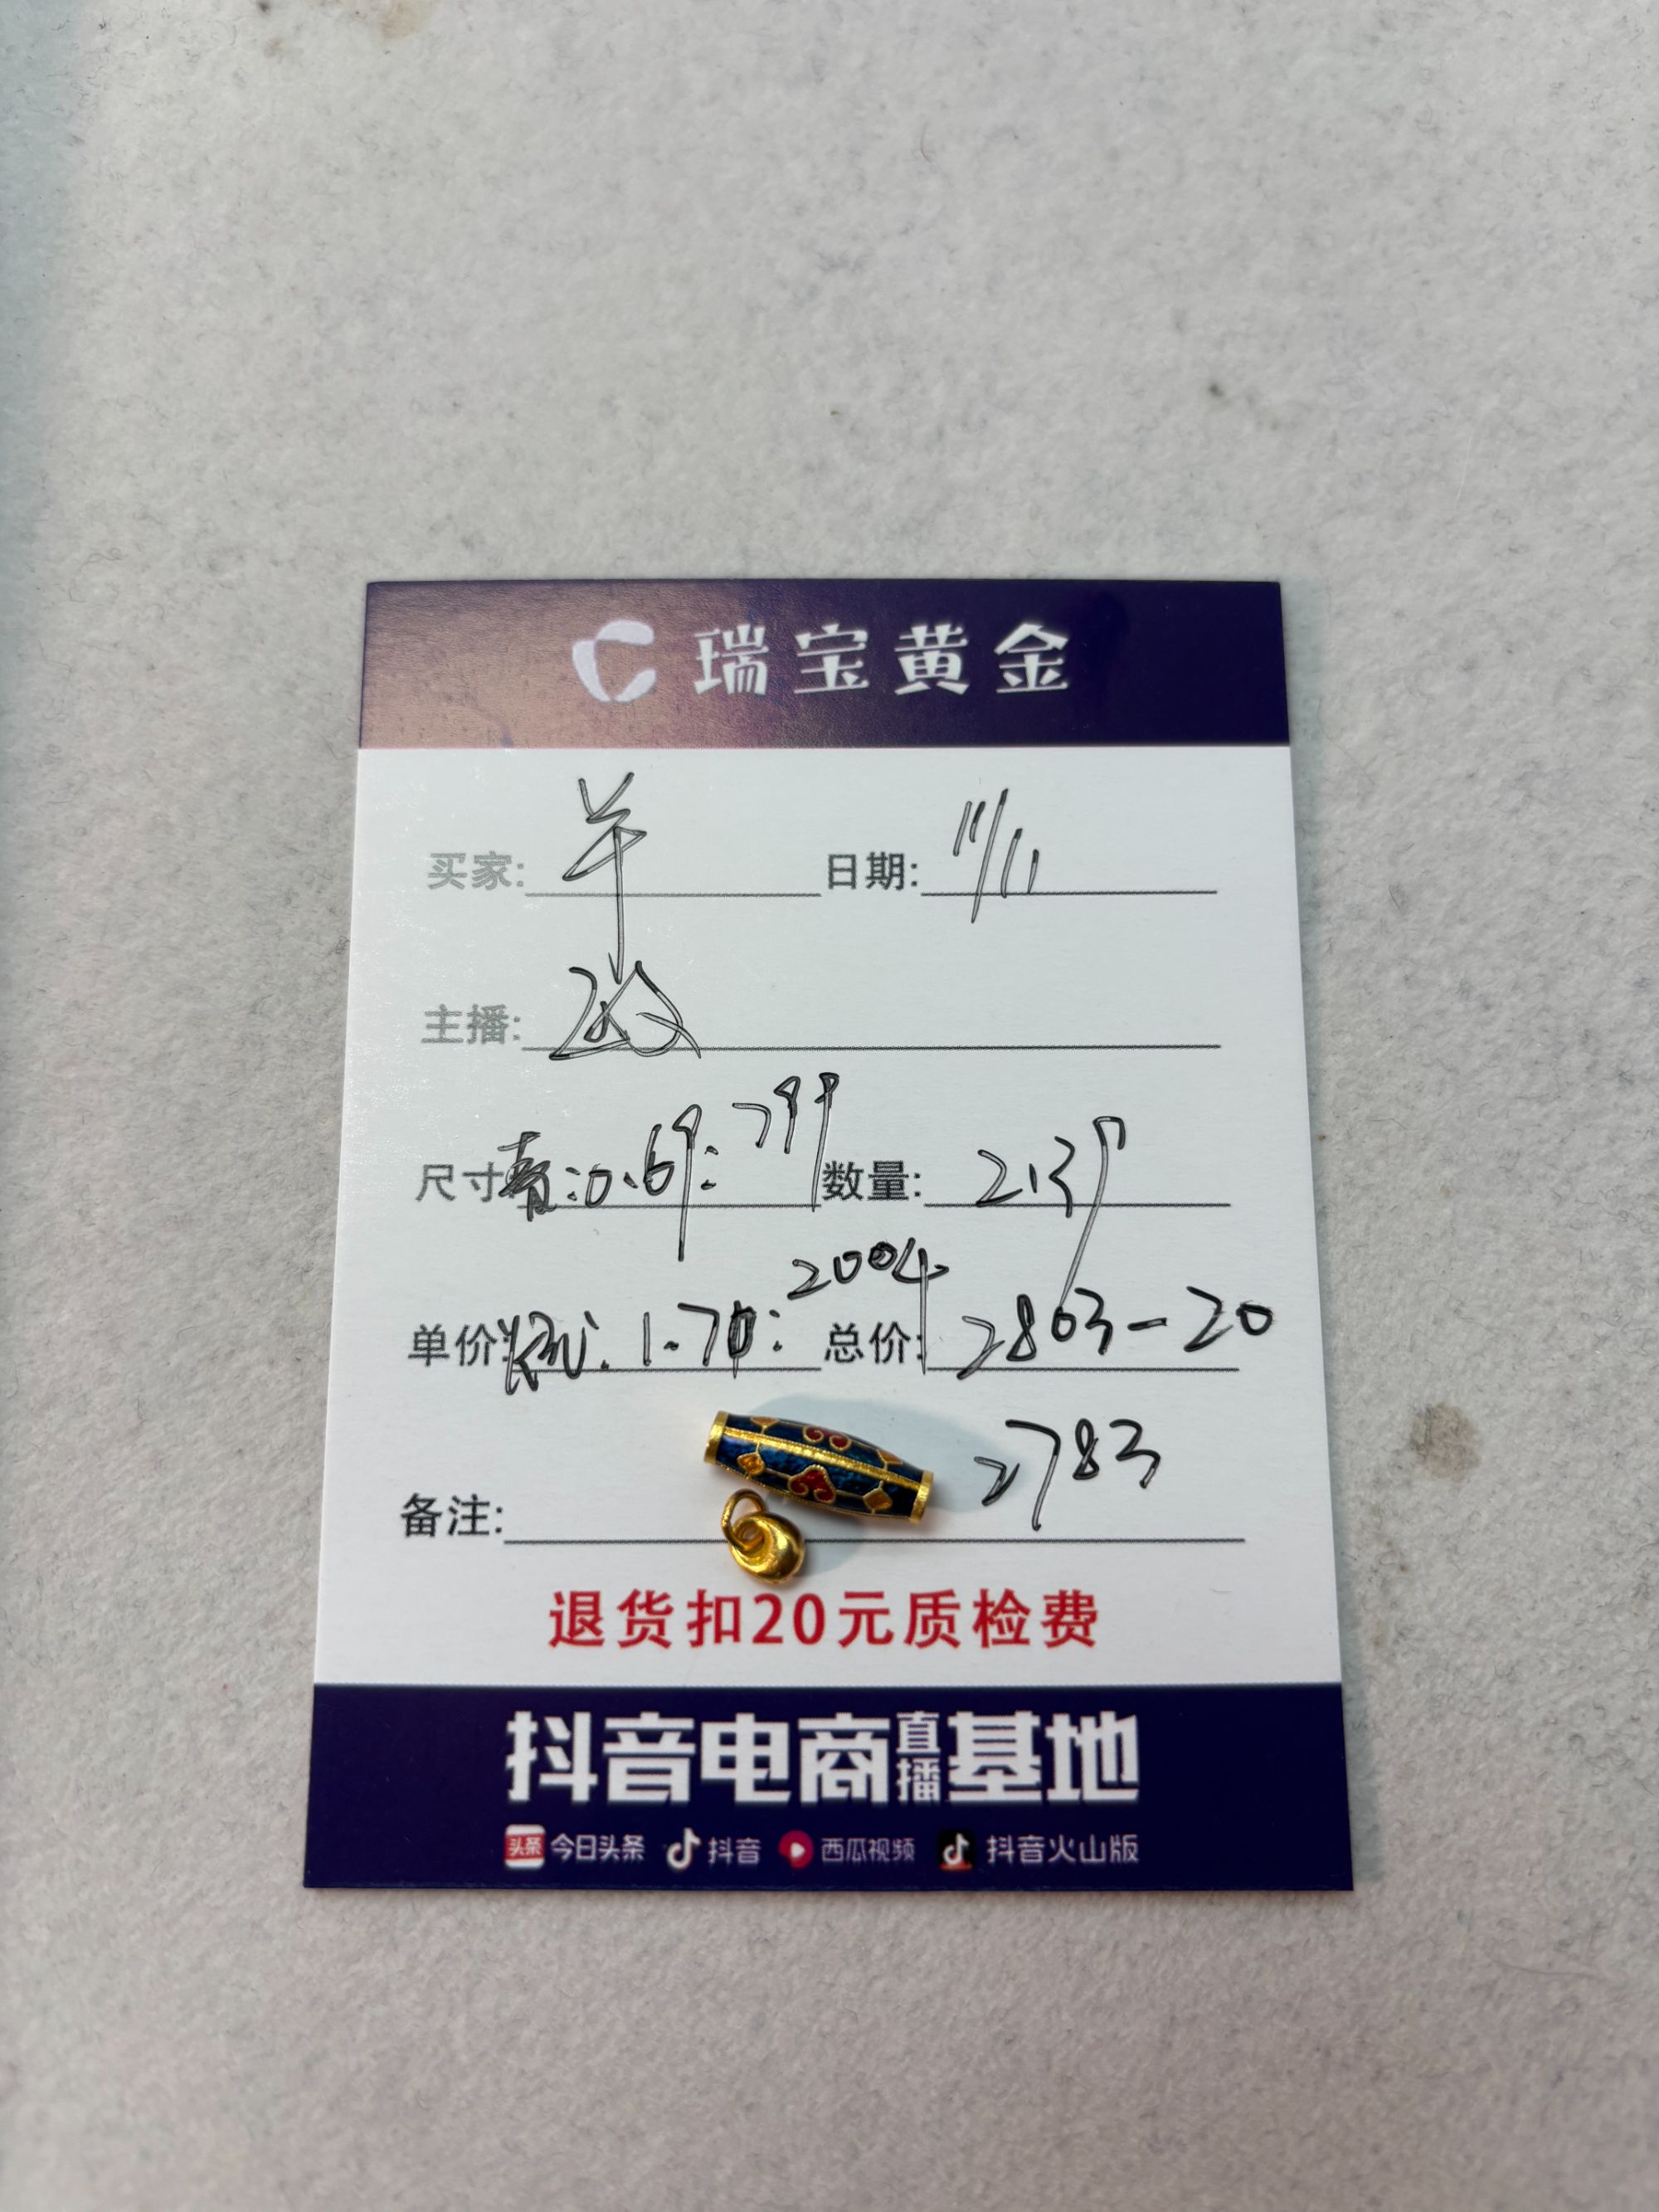 瑞宝黄金
买家: 羊 日期: 11/11
主播:
尺寸: 0.69: 799 数量: 2.39
单价: 1.70: 2004 总价: 2803-20
2783
备注:
退货扣20元质检费
抖音电商直播基地
头条 今日头条 抖音 西瓜视频 抖音火山版